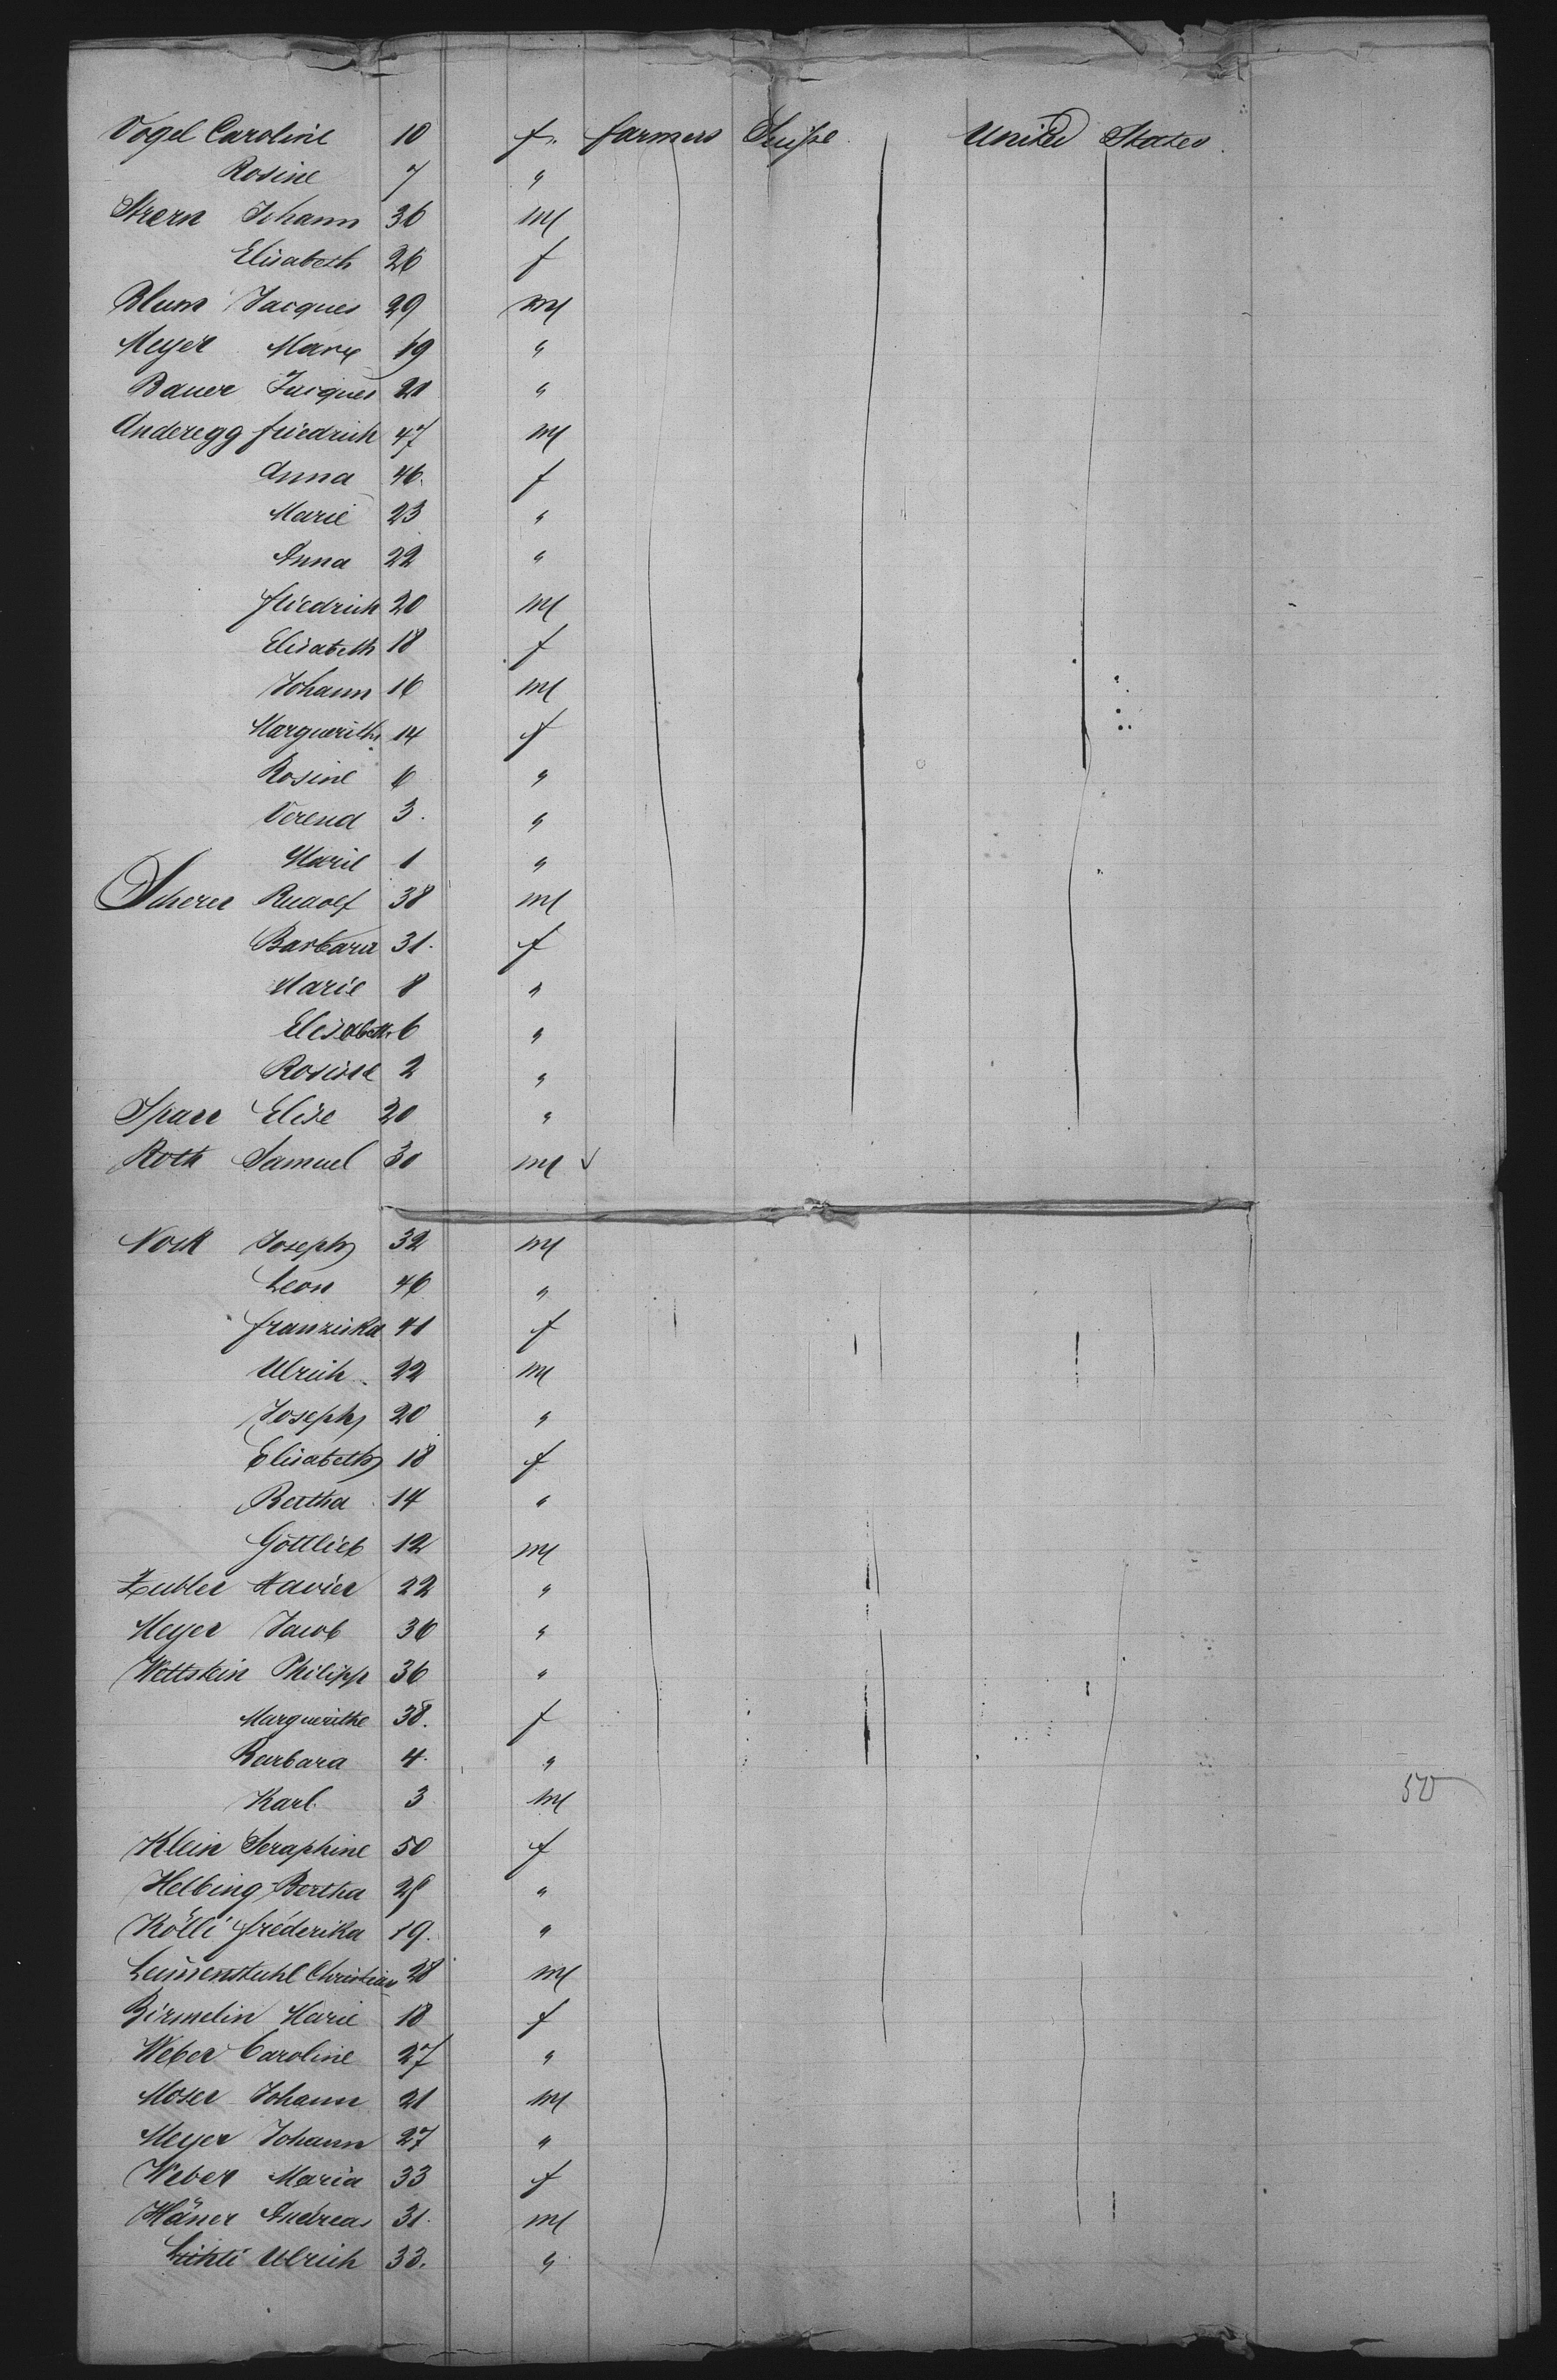 Vogel Caroline 10 f. farmers Suisse United States.
Rosine 7 "
Stern Johann 36 M
Elisabeth 26 f
Blum Jacques 29 M
Meyer Marx 19 "
Bauer Jacques 21 "
Anderegg friedrich 47 M
Anna 46. f
Marie 23 "
Anna 22 "
friedrich 20 M
Elisabeth 18 f
Johann 16 M
Marguerithe 14 f
Rosine 6 "
Verena 3. "
Marie 1 "
Scherer Rudolf 38 M
Barbara 31. f
Marie 8 "
Elisabeth 6 "
Rosine 2 "
Sparr Elise 20 "
Roth Samuel 30 M
Nock Joseph 32 M
Leon 46 "
franziska 41 f
Ulrich 22 M
Joseph 20 "
Elisabeth 18 f
Bertha 14 "
Gottlieb 12 M
Zubler Xavier 22 "
Meyer Jacob 36 "
Wettstein Philipp 36 "
Marguerithe 38. f
Barbara 4. "
Karl 3 M
Klein Seraphine 50 f
Helbing Bertha 29 "
Kölli fréderika 19. "
Christian 28 M
Birmelin Marie 18 f
Weber Caroline 27 "
Moser Johann 21 M
Meyer Johann 27 "
Weber Maria 33 f
Häner Andreas 31. M
Lichti Ulrich 33. "